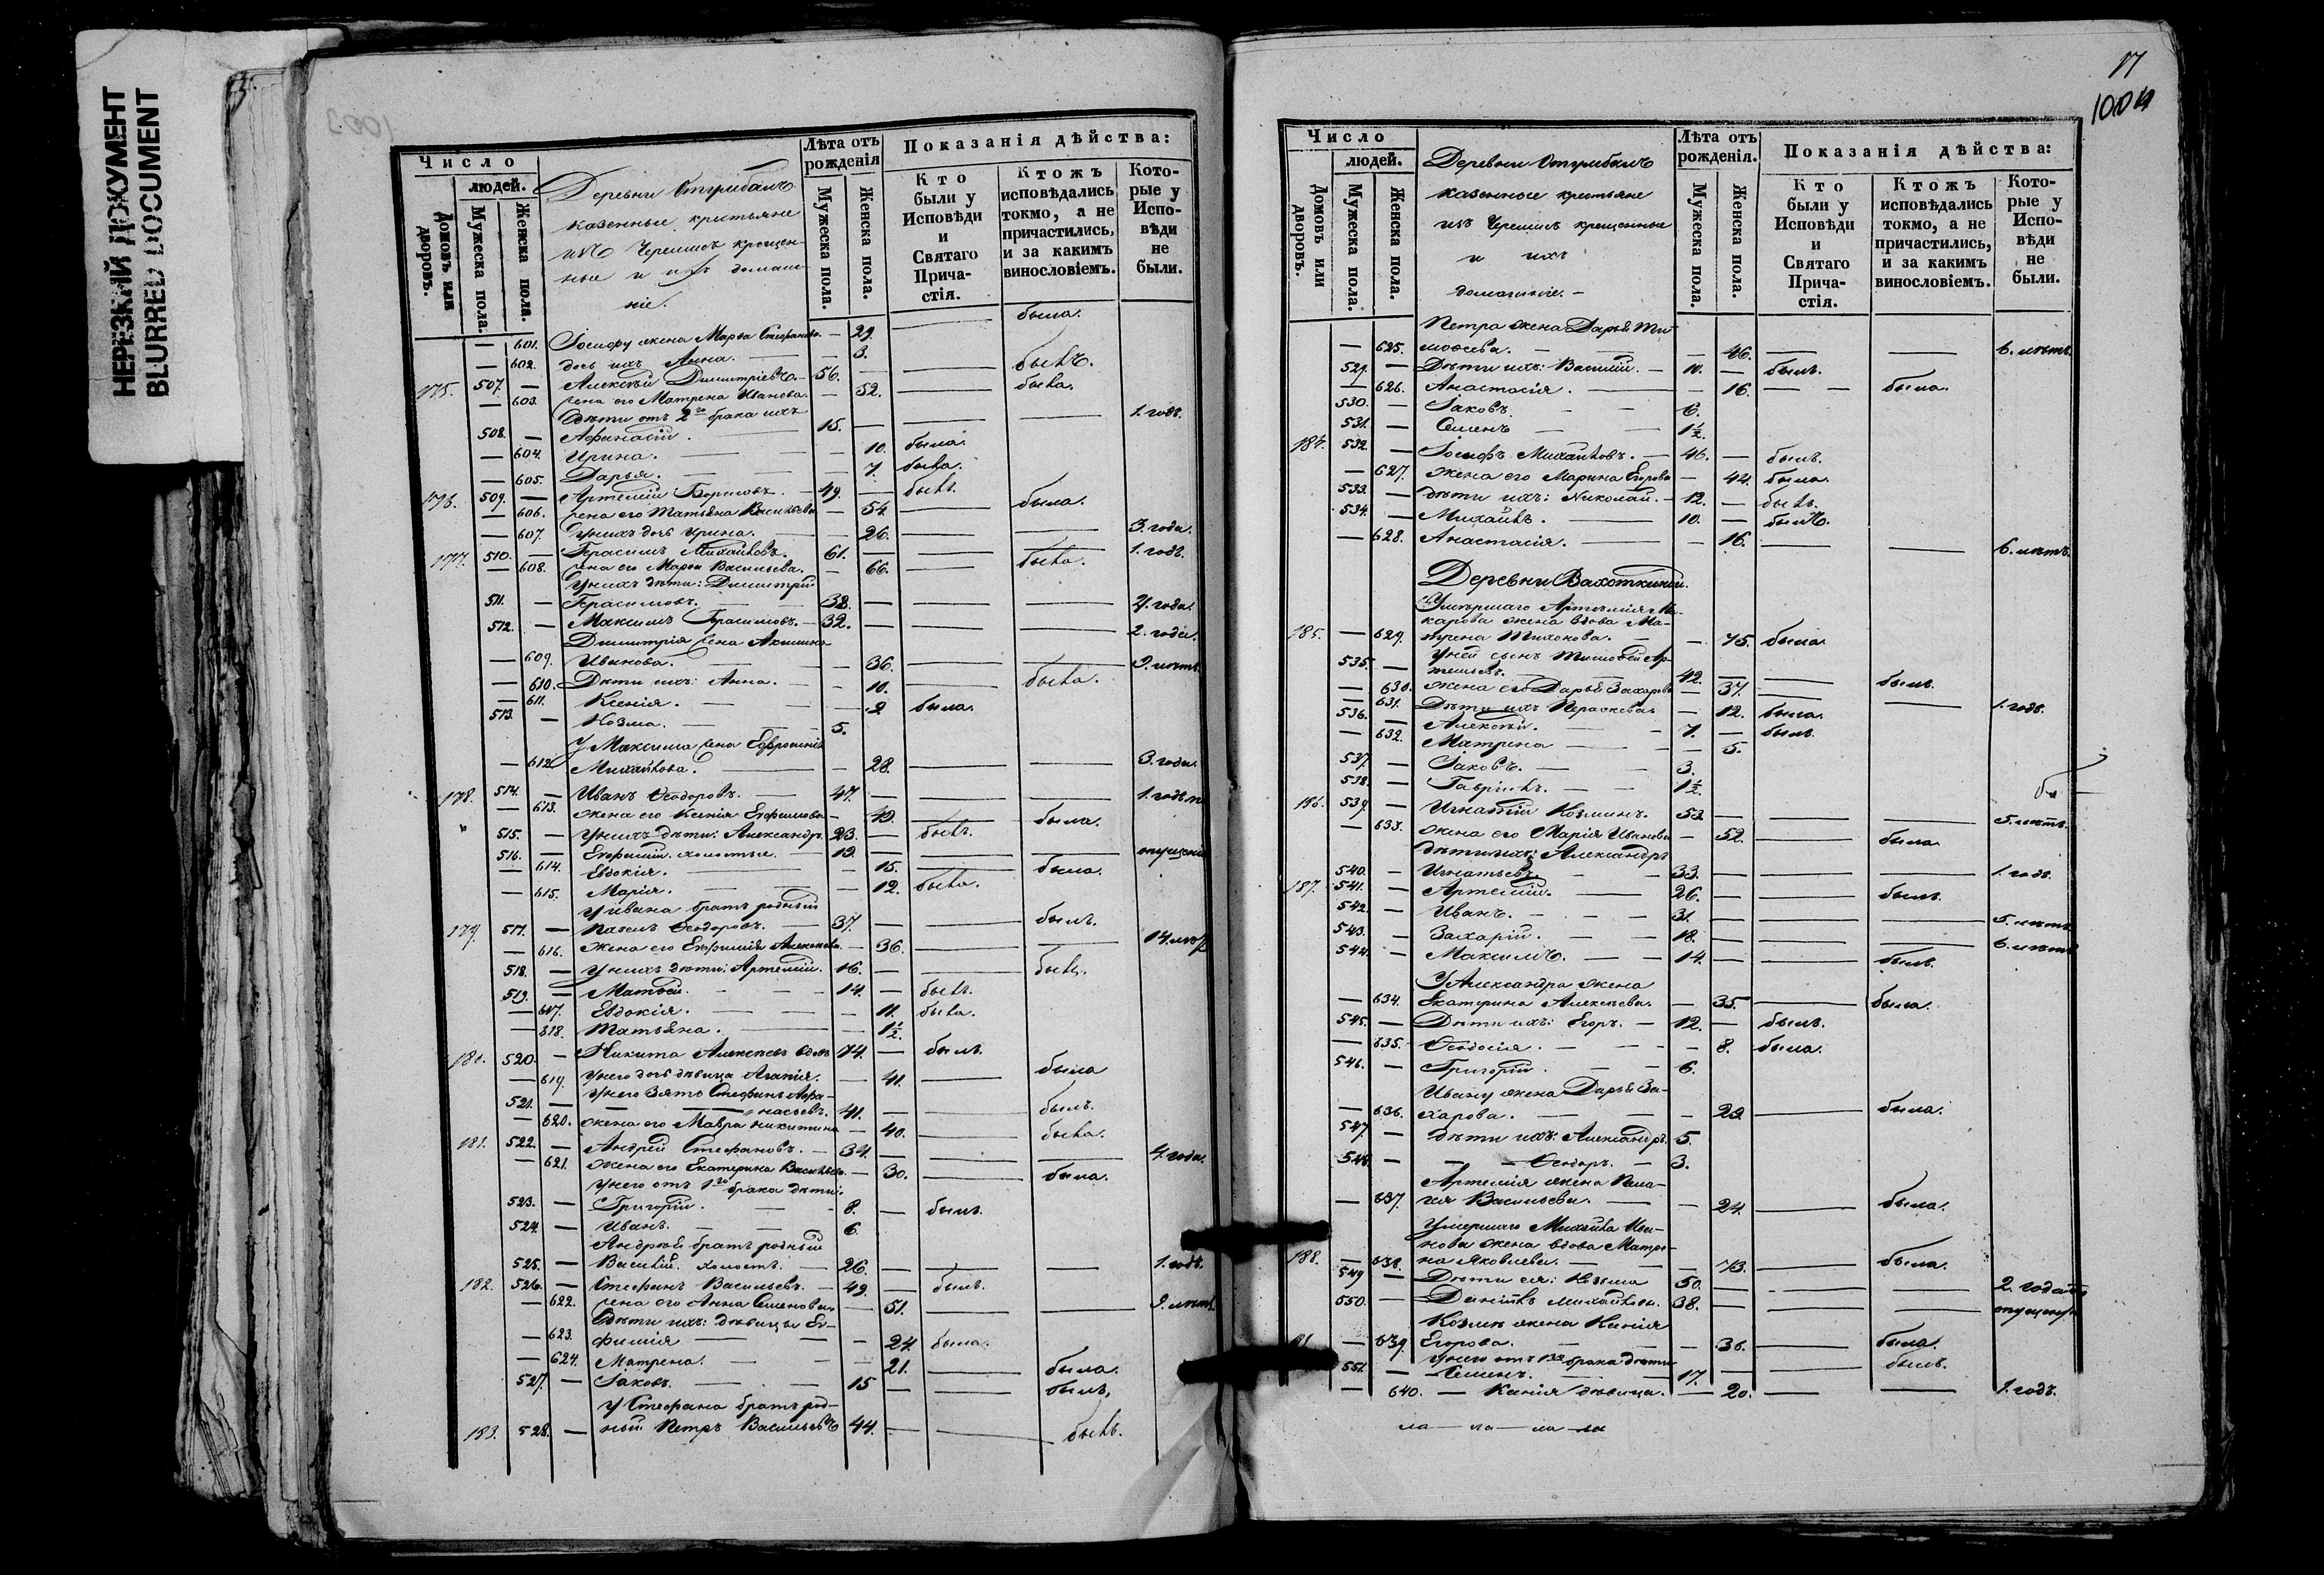 НЕРЕЗКИЙ ДОКУМЕНТ
BLURRED DOCUMENT
Число
людей.
Домовъ или дворовъ.
Мужеска пола.
Женска пола.
Деревни
казенные крестьяне
изъ Черемисъ крещен-
ные и ихъ домаш-
ніе.
Лѣта отъ рожденія
Мужеска пола.
Женска пола.
Показанія дѣйства:
Кто были у Исповѣди и Святаго Прича-стія.
Ктожъ исповѣдались токмо, а не причастились, и за какимъ винословіемъ.
Кото-рые у Испо-вѣди не были.
— 601. Іосифу жена Марѳа — 29. — была.
— 602. дочь ихъ Анна. — 3.
175. 507. — Алексѣй Димитріевъ 56. — — былъ.
— 603. жена его Матрена Иванова. — 52. — была.
Дѣти отъ 2го брака ихъ
508. — Афанасій. 15. — — — 1. годъ.
— 604. Ирина. — 10. была.
— 605. Дарья. — 7. была.
176. 509. — Артемій Борисовъ. — 49. — былъ.
— 606. жена его Татьяна Васильева — 54. — была.
— 607. У нихъ дочь Ирина. — 26. — — 3. года.
177. 510. — Герасимъ Михайловъ. 61. — — — 1. годъ.
— 608. жена его Марѳа Васильева. — 66. — была.
У нихъ дѣти: Димитрій
511. — Герасимовъ. 38. — — — 4. года.
512. — Максимъ Герасимовъ. — 32. — — — 2. года.
Димитрія жена Акилина
— 609. Иванова. — 36. — — 9. лѣтъ.
— 610. Дѣти ихъ: Анна. — — 10. — была.
— 611. Ксенія. — 9 была.
513. — Козма. — 5.
У Максима жена Евфросинія
— 612. Михайлова. — 28. — — 3. года.
178. 514. — Иванъ Ѳеодоровъ. — 47. — — — 1. годъ
— 613. жена его Ксенія Евфимова — 49. — была.
515. — У нихъ дѣти: Александръ. 23. — былъ.
516. — Евфимій. холостые. — 19. — — —
— 614. Евдокія. — 15. — была.
— 615. Марія. — 12. была.
У Ивана братъ родный
179. 517. — Павелъ Ѳеодоровъ. — 37. — — былъ.
— 616. жена его Евфимія Алексѣева. — 36. — — 14. лѣтъ
518. — У нихъ дѣти: Артемій. 16. — — былъ.
519. — Матвей. — 14. — былъ.
— 617. Евдокія. — 11. была.
— 618. Татьяна. — 1½.
180. 520. — Никита Алексѣевъ вдовъ 74. — былъ.
— 619. У него дочь дѣвица Агапія. — 41. — была
У него зять Стефанъ Афа-
521. — насьевъ. 41. — — былъ.
— 620. жена его Мавра Никитина — 40. — была.
181. 522. — Андрей Стефановъ. — 34. — — — 4. года.
— 621. жена его Екатерина Васильева — 30. — была.
У него отъ 1го брака дѣти:
523. — Григорій. — 8. — былъ.
524. — Иванъ. — 6.
Андрей братъ родный
525. — Василій. холостъ. — 26. — — — 1. годъ.
182. 526. — Стефанъ Васильевъ. — 49. — былъ.
— 622. жена его Анна Семенова — 51. — — 9. лѣтъ.
Дѣти ихъ: дѣвицы Ев-
— 623. фимія — 24. была.
— 624. Матрена. — 21. — была.
527. — Іаковъ. — 15 — — былъ,
У Стефана братъ род-
183. 528. — ный Петръ Васильевъ 44. — — былъ.
17
1004
Число
людей.
Домовъ или дворовъ.
Мужеска пола.
Женска пола.
Деревни
казенные крестьяне
изъ Черемисъ крещенные
и ихъ
домашніе. —
Лѣта отъ рожденія.
Мужеска пола.
Женска пола.
Показанія дѣйства:
Кто были у Исповѣди и Святаго Прича-стія.
Ктожъ исповѣдались токмо, а не причастились, и за какимъ винословіемъ.
Кото-рые у Испо-вѣди не были.
Петра жена Дарья Ти-
— 625. моѳеева. — — 46. — — 6. лѣтъ.
529. — Дѣти ихъ: Василій. — 10. — былъ.
— 626. Анастасія. — 16. — — была.
530. — Іаковъ. — 6.
531. — Семенъ — 1½.
184. 532. — Іосифъ Михайловъ. — 46. — былъ.
— 627. жена его Марина Егорова — 44. была.
533. — дѣти ихъ: Николай. — 12. — былъ.
534. — Михайлъ. — 10. — былъ.
— 628. Анастасія. — 16. — — 6. лѣтъ.
Деревни
Умершаго Артемія Ма-
карова жена вдова Ма-
185. — 629. трена Тихонова. — — 75. была.
У ней сынъ Тимоѳей Ар-
535. — темьевъ. 42. — — былъ.
— 630. жена его Дарья Захарова — 37. —
— 631. Дѣти ихъ Параскева — 12. была. — 1. годъ.
536. — Алексѣй. — 7. — былъ.
— 632. Матрена — — 5.
537. — Іаковъ. — 3.
538. — Гаврілъ. — 1½
186. 539. — Игнатій Козминъ. 53. — — — 5. лѣтъ.
— 633. жена его Марія Иванова — 52. — была.
дѣти ихъ: Александръ
540. — Игнатьевъ — 33. — — — 1. годъ.
187. 541. — Артемій. — 26. — — былъ.
542. — Иванъ. — 31. — — — 5. лѣтъ
543. — Захарій. — 18. — — — 6. лѣтъ
544. — Максимъ. — 14. — — былъ.
У Александра жена
— 634. Екатерина Алексѣева. — 35. — была.
545. — Дѣти ихъ: Егоръ. — 12. — былъ.
— 635. Ѳеодосія. — — 8. была.
546. — Григорій. — 6.
Ивану жена Дарья За-
— 636. харова. — — 29. — была.
547. — дѣти ихъ: Александръ. 5.
548. — — — Ѳеодоръ. — 3.
Артемія жена Пела-
— 637. гея Васильева. — — 24. — была.
Умершаго Михайла Ива-
нова жена вдова Матре-
188. — 638. на Яковлева. — 73. — была.
549 — Дѣти ея: Козьма 50. — — — 2. года
550. — Данилъ Михайловы. 38. — — —
Козмы жена Ксенія
— 639. Егорова. — — 36. — была.
У него отъ 1го брака дѣти
551. — Семенъ. — 17. — — былъ.
— 640. — Ксенія дѣвица. — 20. — — 1. годъ.